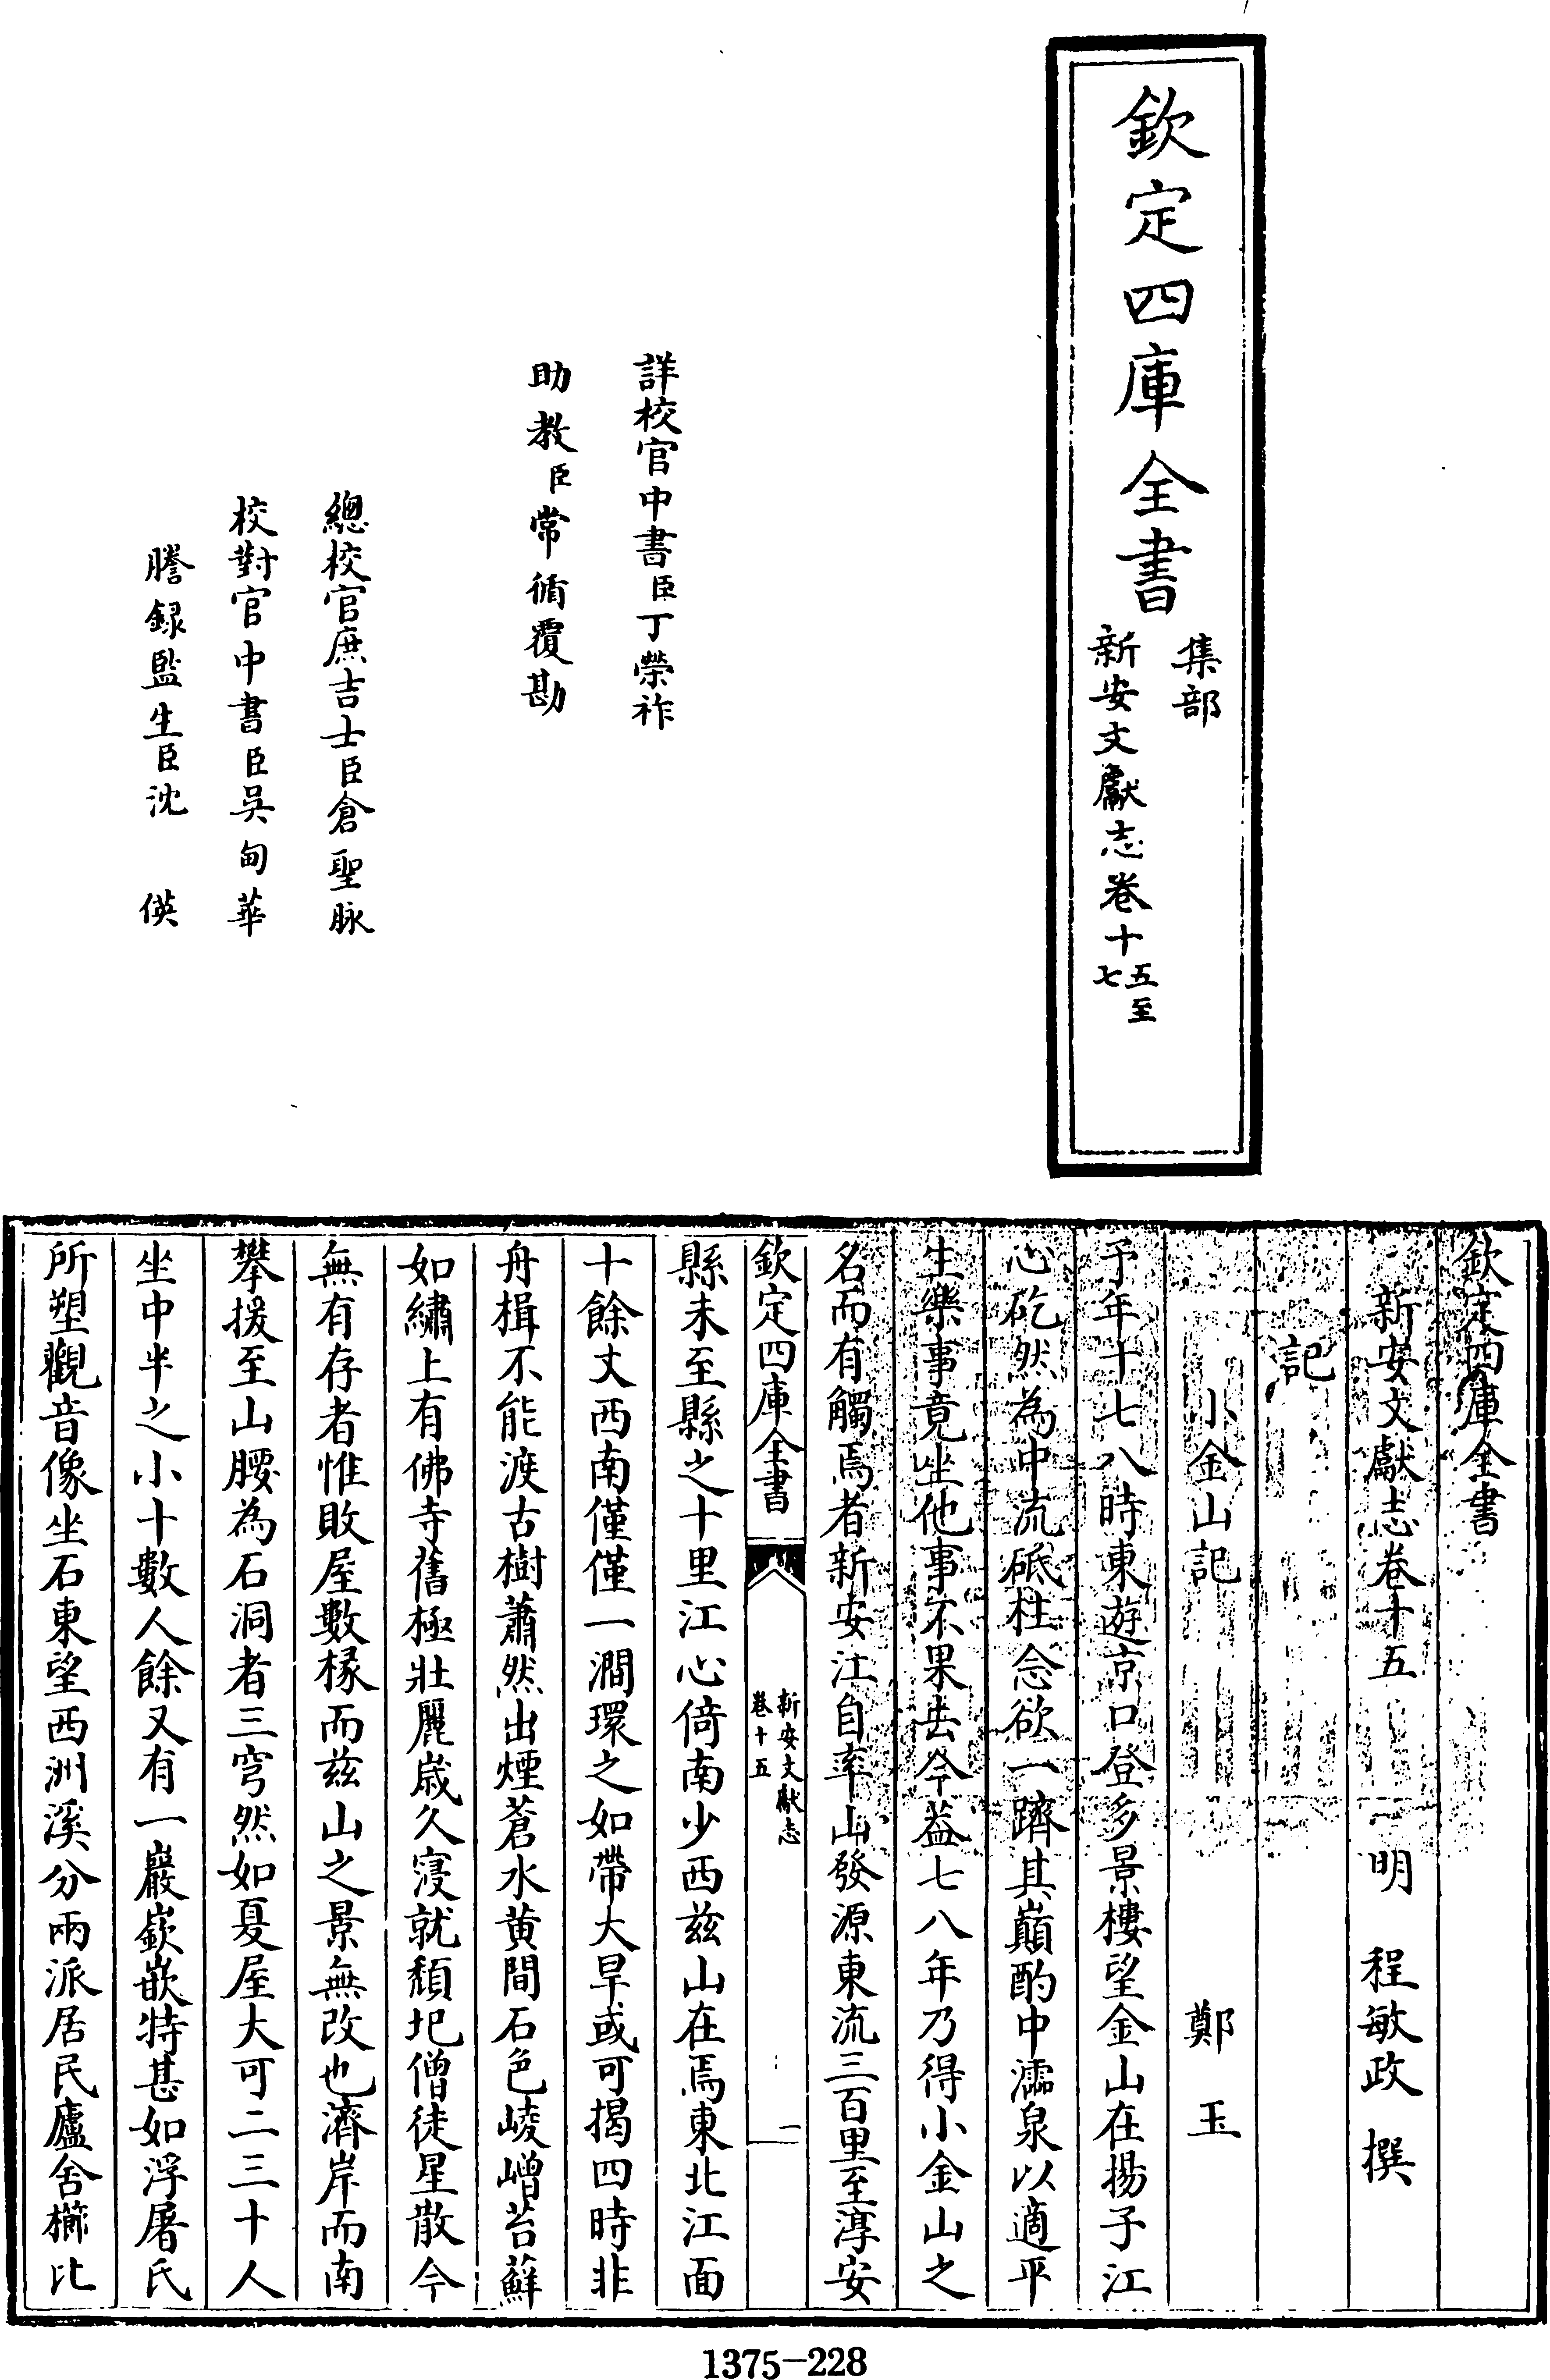 欽定四庫全書
集部
新安文獻志卷十五至七
詳校官中書臣丁榮祚
助教臣常循覆勘
總校官庶吉士臣倉聖脉
校對官中書臣吳甸華
謄錄監生臣沈 偀
欽定四庫全書
新安文獻志卷十五
明 程敏政 撰
記
小金山記
鄭 玉
予年十七八時東遊京口登多景樓望金山在揚子江
心矻然為中流砥柱念欲一躋其巔酌中濡泉以適平
生樂事竟坐他事不果去今葢七八年乃得小金山之
名而有觸焉者新安江自率山發源東流三百里至淳安
欽定四庫全書
新安文獻志
卷十五
一
縣未至縣之十里江心倚南少西兹山在焉東北江面
十餘丈西南僅僅一澗環之如帶大旱或可揭四時非
舟楫不能渡古樹蕭然出煙蒼水黄間石色崚嶒苔蘚
如繡上有佛寺舊極壯麗歲久寖就頹圯僧徒星散今
無有存者惟敗屋數椽而兹山之景無改也濟岸而南
攀援至山腰為石洞者三穹然如夏屋大可二三十人
坐中半之小十數人餘又有一巖嶔嵌特甚如浮屠氏
所塑觀音像坐石東望西洲溪分兩派居民廬舍櫛比
1375-228